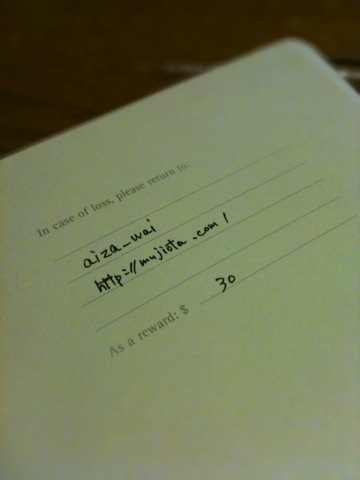 In case of loss, please return to:
aiza_wai
http://mujista.com/
As a reward: $ 30